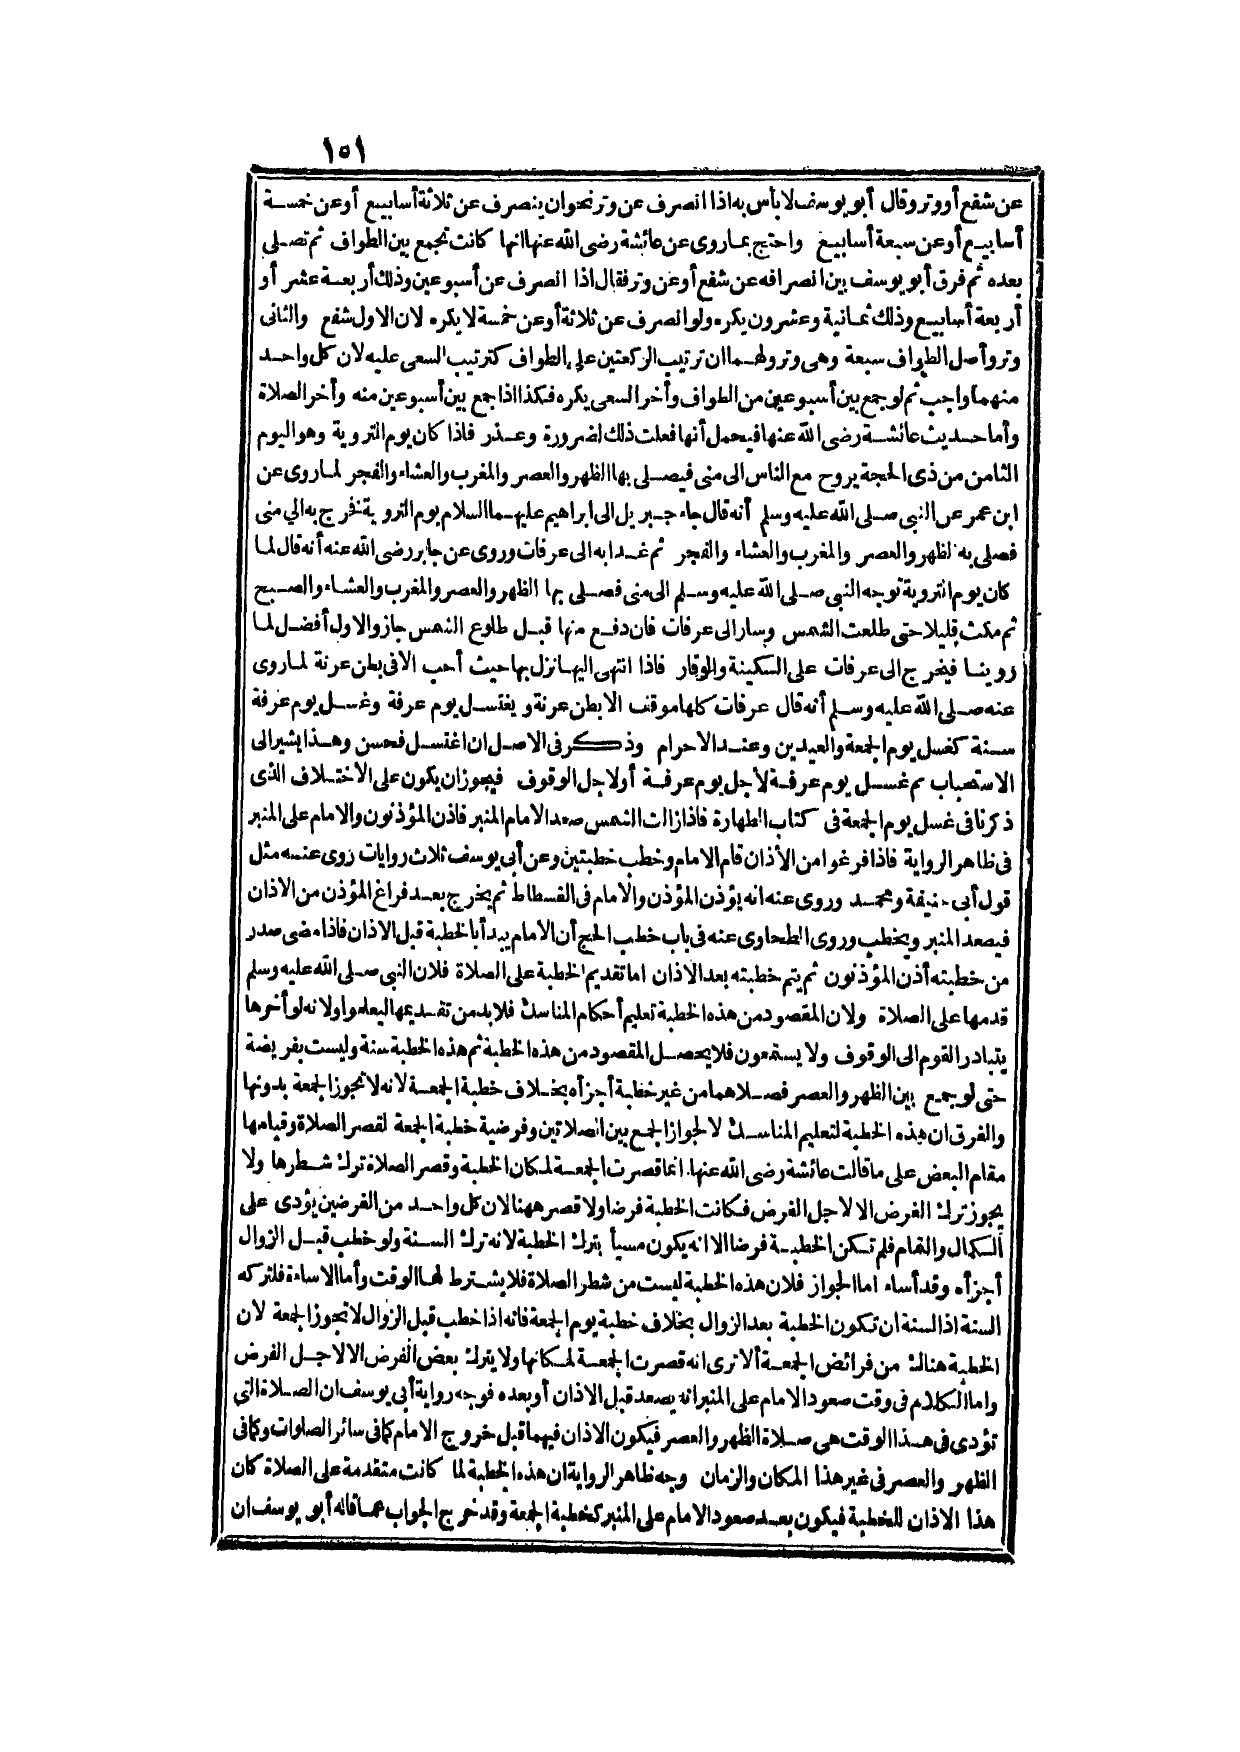 ١٥١
عن شفع أو وتر وقال أبو يوسف لا بأس به اذا انصرف عن وتر نحو ان ينصرف عن ثلاثة أسابيع أو عن خمسة
أسابيع أو عن سبعة أسابيع واحتج بما روى عن عائشة رضى الله عنها انها كانت تجمع بين الطواف ثم تصلى
بعده ثم فرق أبو يوسف بين انصرافه عن شفع أو عن وتر فقال اذا انصرف عن أسبوعين وذلك أربعة عشر أو
أربعة أسابيع وذلك ثمانية وعشرون يكره ولو انصرف عن ثلاثة أو عن خمسة لا يكره لان الاول شفع والثانى
وتر وأصل الطواف سبعة وهى وتر ولهما ان ترتيب الركعتين على الطواف كترتيب السعى عليه لان كل واحد
منهما واجب ثم لو جمع بين أسبوعين من الطواف وأخر السعى يكره فكذا اذا جمع بين أسبوعين منه وأخر الصلاة
وأما حديث عائشة رضى الله عنها فيحمل أنها فعلت ذلك لضرورة وعذر فاذا كان يوم التروية وهو اليوم
الثامن من ذى الحجة يروح مع الناس الى منى فيصلى بها الظهر والعصر والمغرب والعشاء والفجر لما روى عن
ابن عمر عن النبى صلى الله عليه وسلم أنه قال جاء جبريل الى ابراهيم عليهما السلام يوم التروية فخرج به الي منى
فصلى به الظهر والعصر والمغرب والعشاء والفجر ثم غدا به الى عرفات وروى عن جابر رضى الله عنه أنه قال لما
كان يوم التروية توجه النبى صلى الله عليه وسلم الى منى فصلى بها الظهر والعصر والمغرب والعشاء والصبح
ثم مكث قليلا حتى طلعت الشمس وسار الى عرفات فان دفع منها قبل طلوع الشمس جاز والاول أفضل لما
روينا فيخرج الى عرفات على السكينة والوقار فاذا انتهى اليها نزل بها حيث أحب الا فى بطن عرنة لما روى
عنه صلى الله عليه وسلم أنه قال عرفات كلها موقف الا بطن عرنة ويغتسل يوم عرفة وغسل يوم عرفة
سنة كغسل يوم الجمعة والعيدين وعند الاحرام وذكر فى الاصل ان اغتسل فحسن وهذا يشير الى
الاستحباب ثم غسل يوم عرفة لاجل يوم عرفة أو لاجل الوقوف فيجوز ان يكون على الاختلاف الذى
ذكرنا فى غسل يوم الجمعة فى كتاب الطهارة فاذا زالت الشمس صعد الامام المنبر فاذن المؤذنون والامام على المنبر
فى ظاهر الرواية فاذا فرغوا من الأذان قام الامام وخطب خطبتين وعن أبى يوسف ثلاث روايات روى عنه مثل
قول أبى حنيفة ومحمد وروى عنه انه يؤذن المؤذن والامام فى الفسطاط ثم يخرج بعد فراغ المؤذن من الاذان
فيصعد المنبر ويخطب وروى الطحاوى عنه فى باب خطب الحج أن الامام يبدأ بالخطبة قبل الاذان فاذا مضى صدر
من خطبته أذن المؤذنون ثم يتم خطبته بعد الاذان اما تقديم الخطبة على الصلاة فلان النبى صلى الله عليه وسلم
قدمها على الصلاة ولان المقصود من هذه الخطبة تعليم أحكام المناسك فلا بد من تقديمها ليعلموا ولانه لو أخرها
يتبادر القوم الى الوقوف ولا يستمعون فلا يحصل المقصود من هذه الخطبة ثم هذه الخطبة سنة وليست بفريضة
حتى لو جمع بين الظهر والعصر فصلاهما من غير خطبة أجزأه بخلاف خطبة الجمعة لانه لا تجوز الجمعة بدونها
والفرق ان هذه الخطبة لتعليم المناسك لا لجواز الجمع بين الصلاتين وفرضية خطبة الجمعة لقصر الصلاة وقيامها
مقام البعض على ما قالت عائشة رضى الله عنها انما قصرت الجمعة لمكان الخطبة وقصر الصلاة ترك شطرها ولا
يجوز ترك الفرض الا لاجل الفرض فكانت الخطبة فرضا ولا قصر ههنا لان كل واحد من الفرضين يؤدى على
الكمال والتمام فلم تكن الخطبة فرضا الا انه يكون مسيأ بترك الخطبة لانه ترك السنة ولو خطب قبل الزوال
أجزأه وقد أساء اما الجواز فلان هذه الخطبة ليست من شطر الصلاة فلا يشترط لها الوقت وأما الاساءة فلتركه
السنة اذ السنة ان تكون الخطبة بعد الزوال بخلاف خطبة يوم الجمعة فانه اذا خطب قبل الزوال لا تجوز الجمعة لان
الخطبة هنالك من فرائض الجمعة ألا ترى انه قصرت الجمعة لمكانها ولا يترك بعض الفرض الا لاجل الفرض
واما الكلام فى وقت صعود الامام على المنبر انه يصعد قبل الاذان أو بعده فوجه رواية أبى يوسف ان الصلاة التى
تؤدى فى هذا الوقت هى صلاة الظهر والعصر فيكون الاذان فيهما قبل خروج الامام كما فى سائر الصلوات وكما فى
الظهر والعصر فى غير هذا المكان والزمان وجه ظاهر الرواية ان هذه الخطبة لما كانت متقدمة على الصلاة كان
هذا الاذان للخطبة فيكون بعد صعود الامام على المنبر كخطبة الجمعة وقد خرج الجواب عما قاله أبو يوسف ان